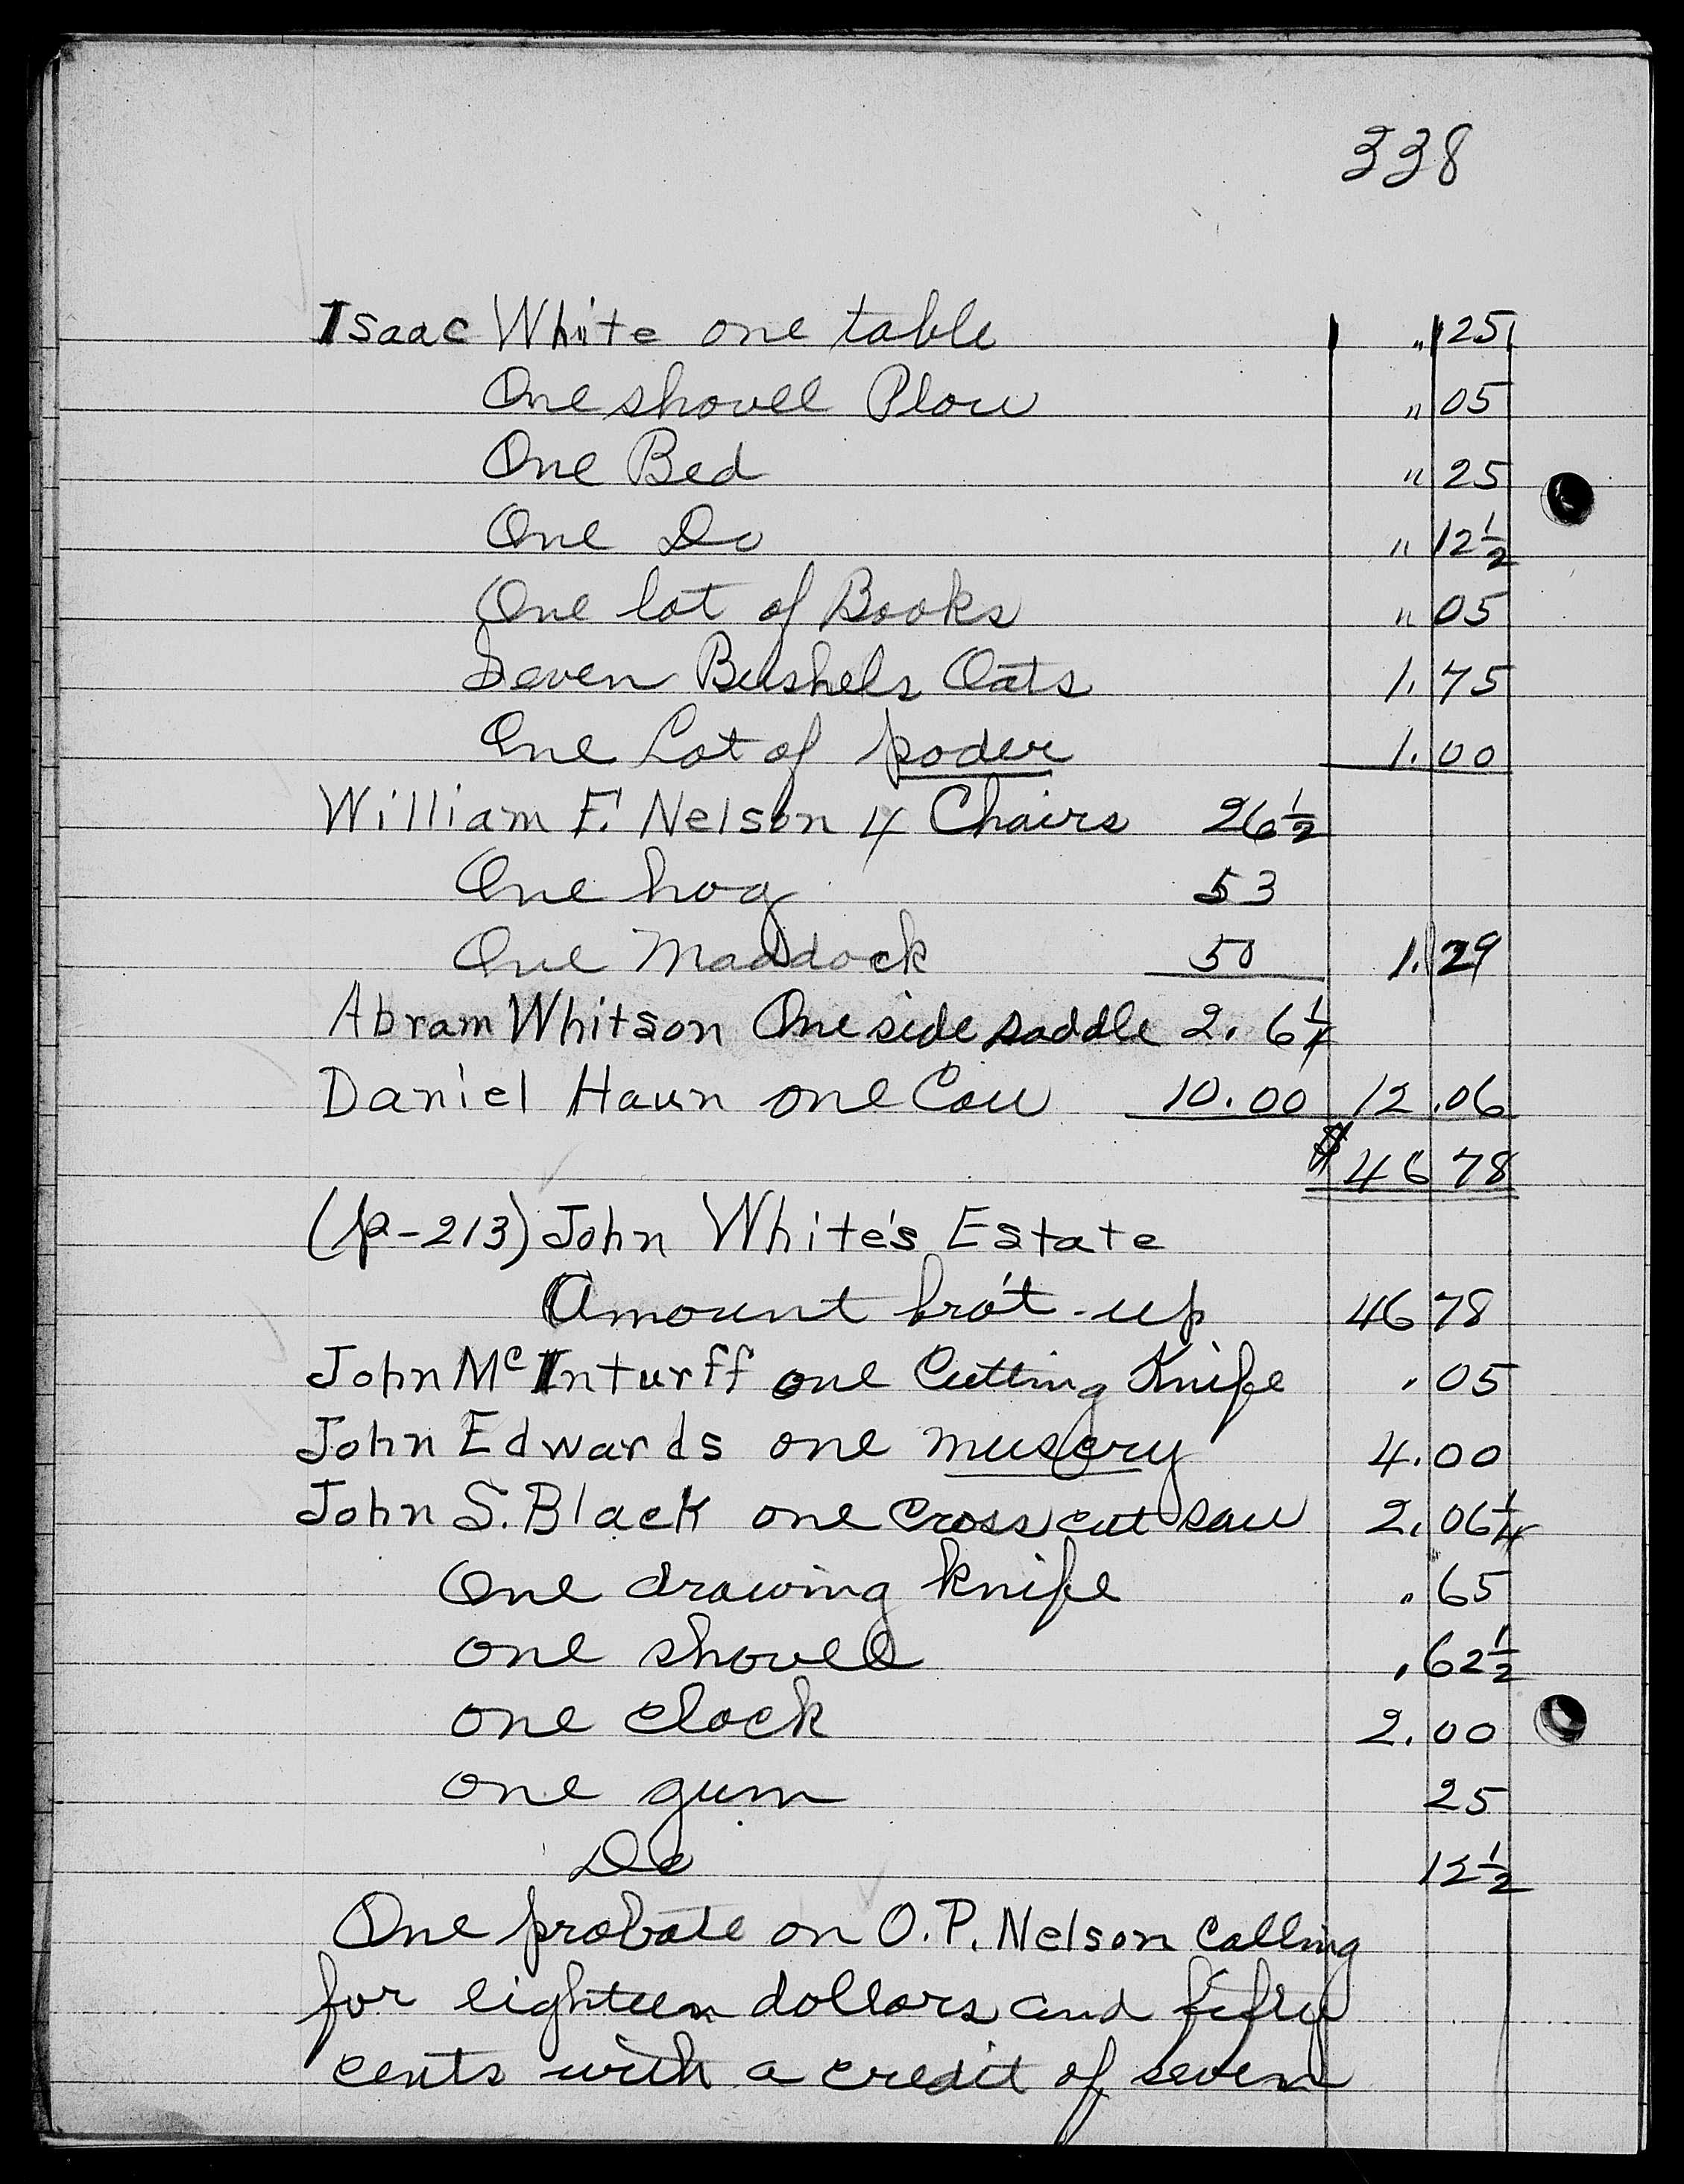 338
Isaac White one table " 25
One shovel Plow " 05
One Bed " 25
One Do " 12½
One lot of Books " 05
Seven Bushels Oats 1. 75
One Lot of poder 1. 00
William F. Nelson 4 Chairs 26½
One hog 53
One Maddock 50 1. 29
Abram Whitson One side saddle 2. 6¼
Daniel Haun one Cow 10.00 12 .06
$ 46 78
(p-213) John White's Estate
Amount bro't-up 46 78
John McInturff one Cutting Knife . 05
John Edwards one 4. 00
John S. Black one cross cut saw 2. 06¼
One drawing knife . 65
one shovel . 62½
one clock 2. 00
one gum 25
Do 12½
One probate on O.P. Nelson calling
for eighteen dollars and fifty
cents with a credit of seven